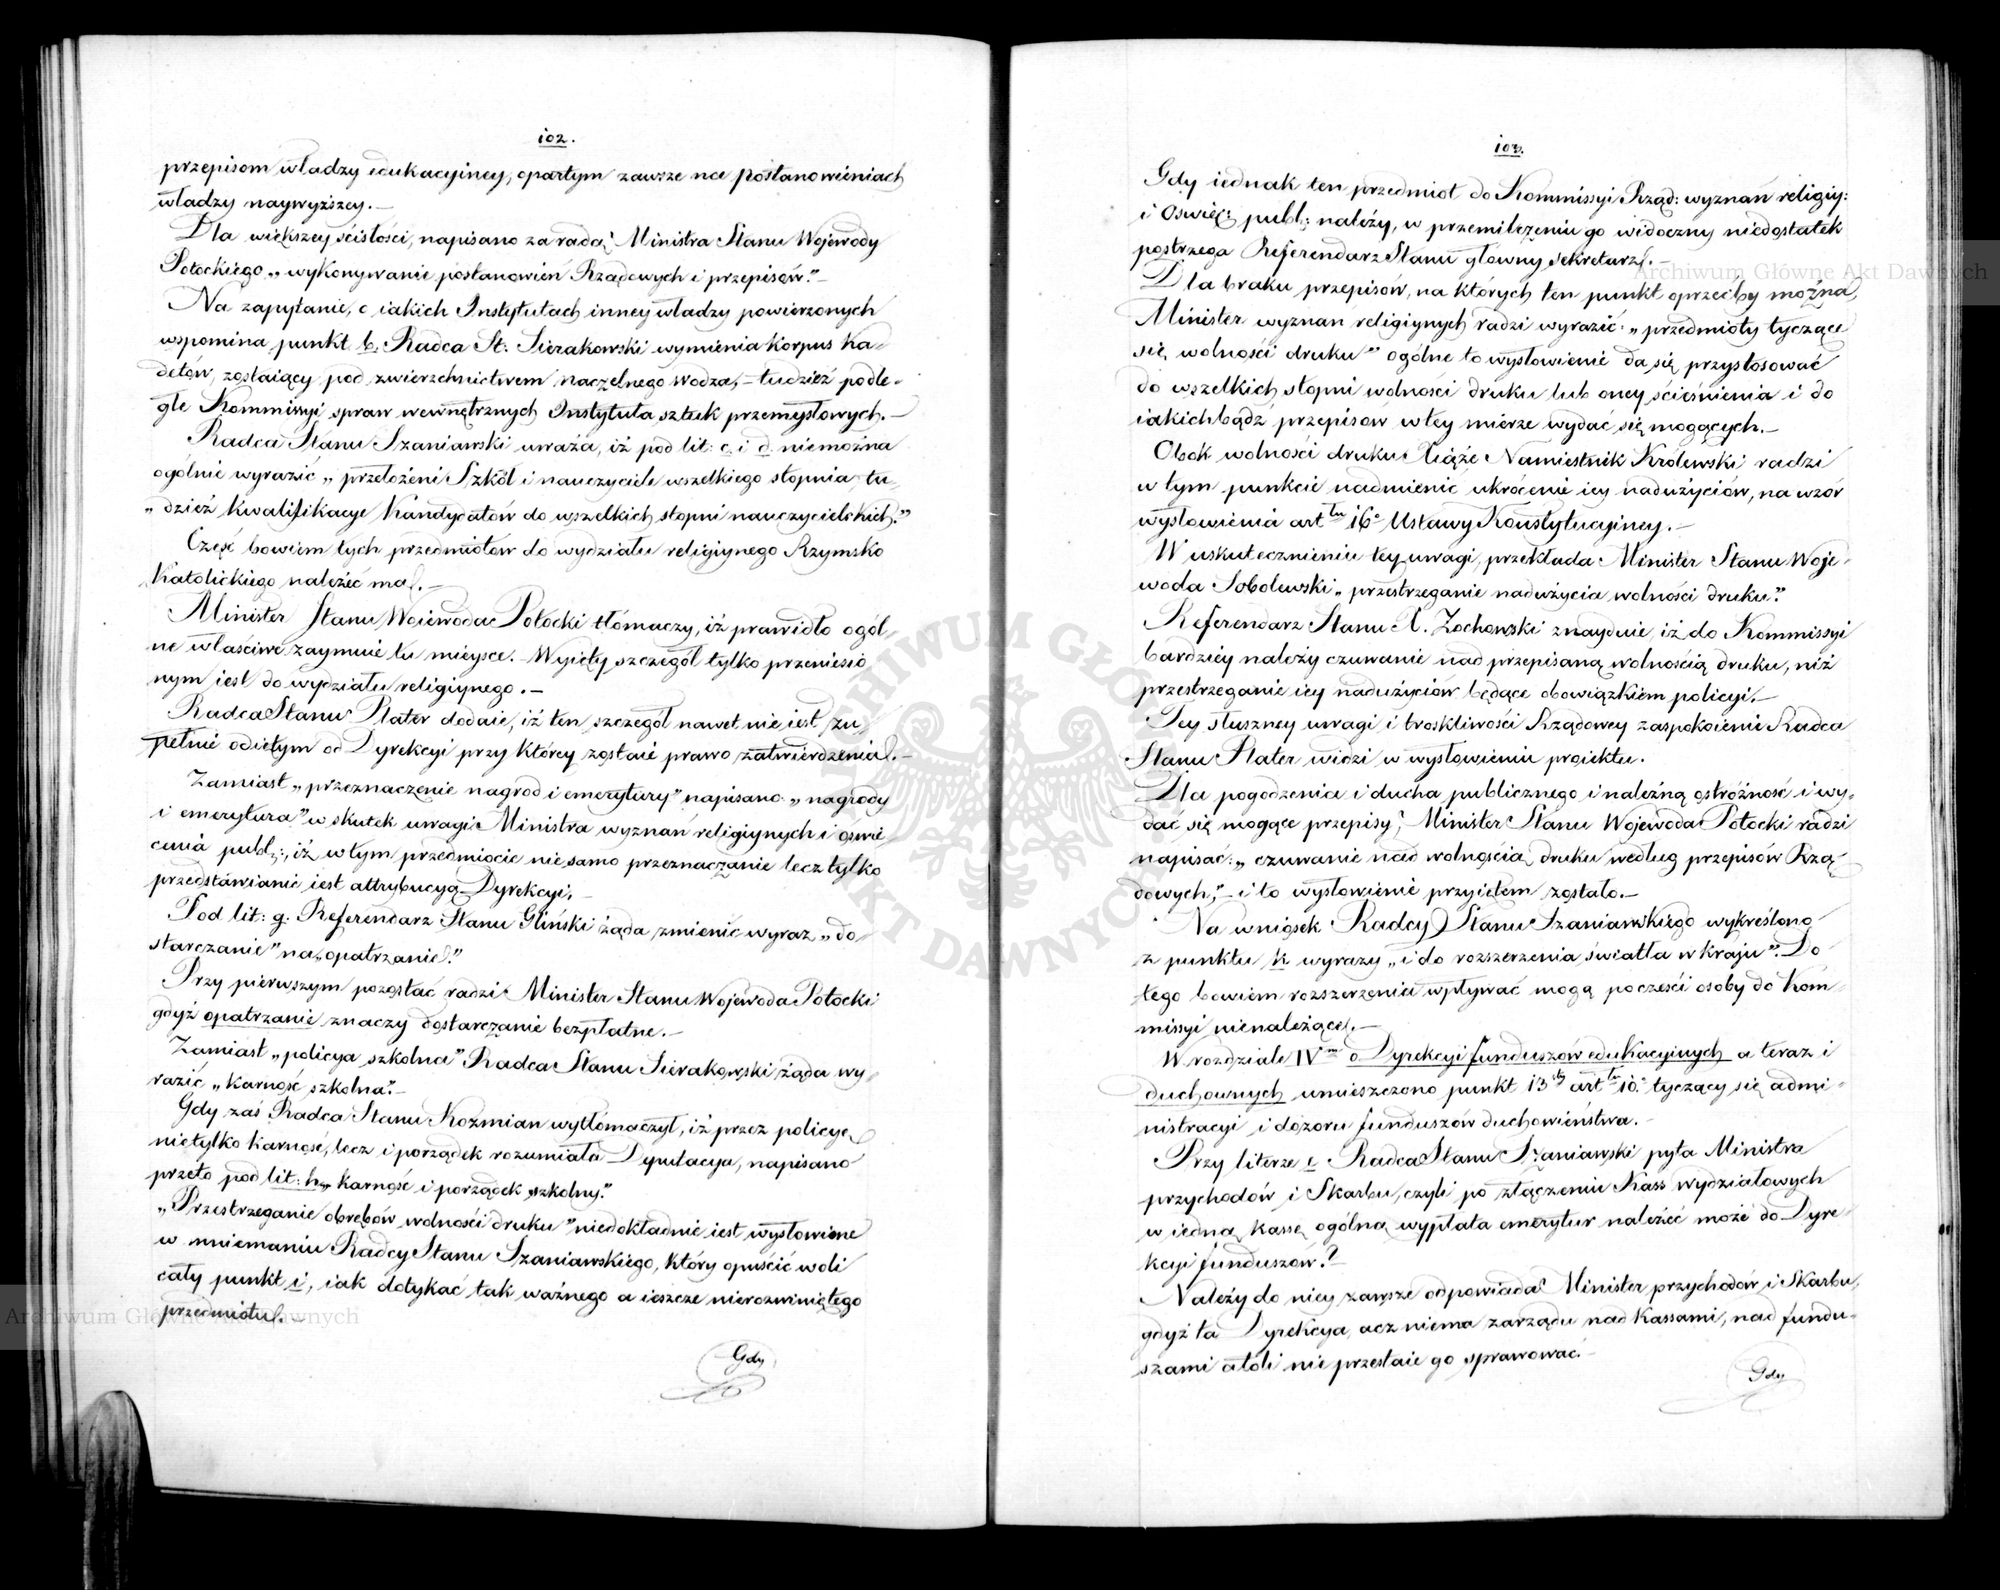 102.
przepisom władzy edukacyiney, opartym zawsze na postanowieniach
władzy naywyższey.—
Dla większey ścisłości, napisano za radą Ministra Stanu Wojewody
Potockiego „wykonywanie postanowień Rządowych i przepisów."—
Na zapytanie, o iakich Instytutach inney władzy powierzonych
wspomina punkt b, Radca St: Sierakowski wymienia korpus ka-
detów, zostaiący pod zwierzchnictwem naczelnego wodza,– tudzież podle-
głe Kommissyi spraw wewnętrznych Instytuta sztuk przemysłowych.—
Radca Stanu Szaniawski uważa, iż pod lit: c. i d. niemożna
ogólnie wyrazić „przełożeni Szkół i nauczyciele wszelkiego stopnia, tu-
„dzież kwalifikacye kandydatów do wszelkich stopni nauczycielskich."
Część bowiem tych przedmiotów do wydziału religiynego Rzymsko
Katolickiego należeć ma.—
Minister Stanu Woiewoda Potocki tłómaczy, iż prawidło ogól-
ne właściwe zaymuie tu mieysce.– Wyięty szczegół tylko przeniesio-
nym iest do wydziału religiynego.—
Radca Stanu Plater dodaie, iż ten szczegół nawet nie iest zu-
pełnie odiętym od Dyrekcyi przy którey zostaie prawo zatwierdzenia.—
Zamiast „przeznaczenie nagrod i emerytury" napisano: „nagrody
i emerytura" w skutek uwagi Ministra wyznań religiynych i oświe-
cenia publ:, iż w tym przedmiocie nie samo przeznaczanie lecz tylko
przedstawianie iest attrybucyą Dyrekcyi.
Pod lit: g. Referendarz Stanu Gliński żąda zmienić wyraz „do-
starczanie" na „opatrzanie."
Przy pierwszym pozostać radzi Minister Stanu Wojewoda Potocki
gdyż opatrzanie znaczy dostarczanie bezpłatne.—
Zamiast „policya szkolna" Radca Stanu Sierakowski żąda wy-
razić „karność szkolna."—
Gdy zaś Radca Stanu Kozmian wytłómaczył, iż przez policyę
nietylko karność, lecz i porządek rozumiała Deputacya, napisano
przeto pod lit: h, „karność i porządek szkolny."
„Przestrzeganie obrębów wolności druku" niedokładnie iest wysłowione
w mniemaniu Radcy Stanu Szaniawskiego, który opuścić woli
cały punkt i, iak dotykać tak ważnego a ieszcze nierozwiniętego
przedmiotu.—
Gdy
103.
Gdy iednak ten przedmiot do Kommissyi Rząd: wyznań religiy:
i Oświec: publ: należy, w przemilczeniu go widoczny niedostatek
postrzega Referendarz Stanu główny sekretarz.—
Dla braku przepisów, na których ten punkt oprzećby można,
Minister wyznań religiynych radzi wyrazić: „przedmioty tyczące
się wolności druku" ogólne to wysłowienie da się przystosować
do wszelkich stopni wolności druku lub oney ścieśnienia i do
iakichbądź przepisow w tey mierze wydać się mogących.—
Obok wolności druku Xiąże Namiestnik Królewski radzi
w tym punkcie nadmienić ukrócenie iey nadużyciów, na wzór
wysłowienia art^tu 16° Ustawy Konstytucyiney.—
W uskutecznieniu tey uwagi, przekłada Minister Stanu Woje-
woda Sobolewski „przestrzeganie nadużycia wolności druku."
Referendarz Stanu X. Zochowski znayduie, iż do Kommissyi
bardziey należy czuwanie nad przepisaną wolnością druku, niż
przestrzeganie iey nadużyciów będące obowiązkiem policyi.—
Tey słuszney uwagi i troskliwości Rządowey zaspokoienie Radca
Stanu Plater widzi w wysłowieniu proiektu.
Dla pogodzenia i ducha publicznego i należną ostróżność i wy-
dać się mogące przepisy, Minister Stanu Wojewoda Potocki radzi
napisać: „czuwanie nad wolnością druku według przepisów Rzą-
dowych,"– i to wysłowienie przyiętem zostało.—
Na wniosek Radcy Stanu Szaniawskiego wykreślono
z punktu k wyrazy „i do rozszerzenia światła w kraju". Do
tego bowiem rozszerzenia wpływać mogą po części osoby do Kom-
missyi nienależące.—
W rozdziale IV^m o Dyrekcyi funduszów edukacyinych a teraz i
duchownych umieszczono punkt 13^ty art^tu 10.° tyczący się admi-
nistracyi i dozoru funduszów duchowieństwa.—
Przy literze e Radca Stanu Szaniawski pyta Ministra
przychodów i Skarbu, czyli po złączeniu Kass wydziałowych
w iedną kassę ogólną wypłata emerytur należeć może do Dyre-
kcyi funduszów?—
Należy do niey zawsze odpowiada Minister przychodów i Skarbu,
gdyż ta Dyrekcya, acz niema zarządu nad kassami, nad fundu-
szami atoli nie przestaie go sprawować.—
Gdy
Archiwum Główne Akt Dawnych
Archiwum Główne Akt Dawnych
ARCHIWUM GŁÓWNE AKT DAWNYCH